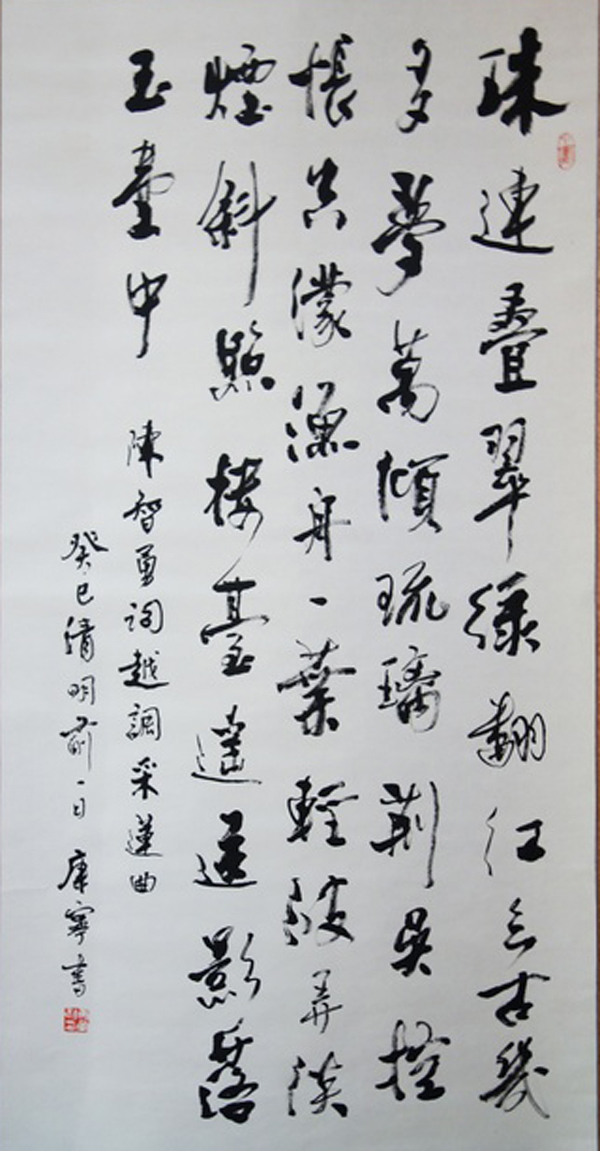 珠連叠翠綠翻紅亘古幾
多夢萬頃琉璃荊吳控
悵空濛漁舟一葉輕波弄淡
煙斜照樓臺遙影落
玉壺中
陳智勇詞越調采蓮曲
癸巳清明前一日康寧書